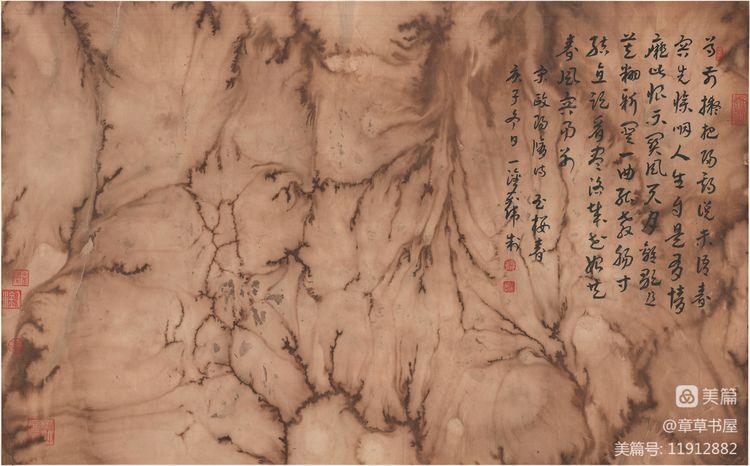 尊前擬把歸期說未語春
容先慘咽人生自是情
癡此恨不關風與月離歌且
莫翻新闋一曲能教腸寸
結直須看盡洛城花始共
春風容易別
宋歐陽修詩玉樓春
庚子冬日一
美篇
@章草书屋
美篇号: 11912882